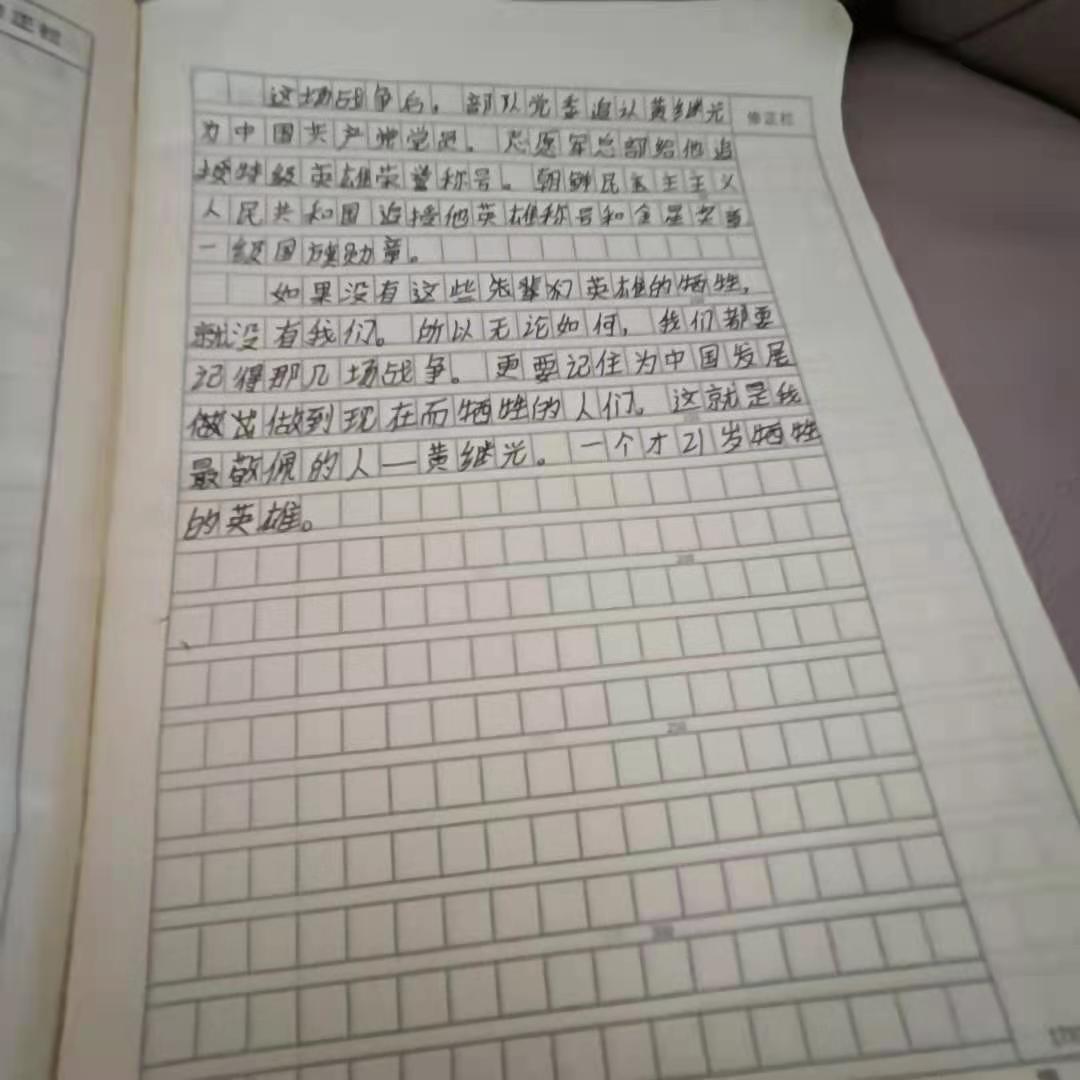 这场战争后，部队党委追认黄继光
修正栏
为中国共产党党员。志愿军总部给他追
授特级英雄荣誉称号。朝鲜民主主义
人民共和国追授他英雄称号和金星奖章
一级国旗勋章。
如果没有这些先辈们英雄的牺牲，
就没有我们。所以无论如何，我们都要
记得那几场战争。更要记住为中国发展
做出做到现在而牺牲的人们。这就是我
最敬佩的人—黄继光。一个才21岁牺牲
的英雄。